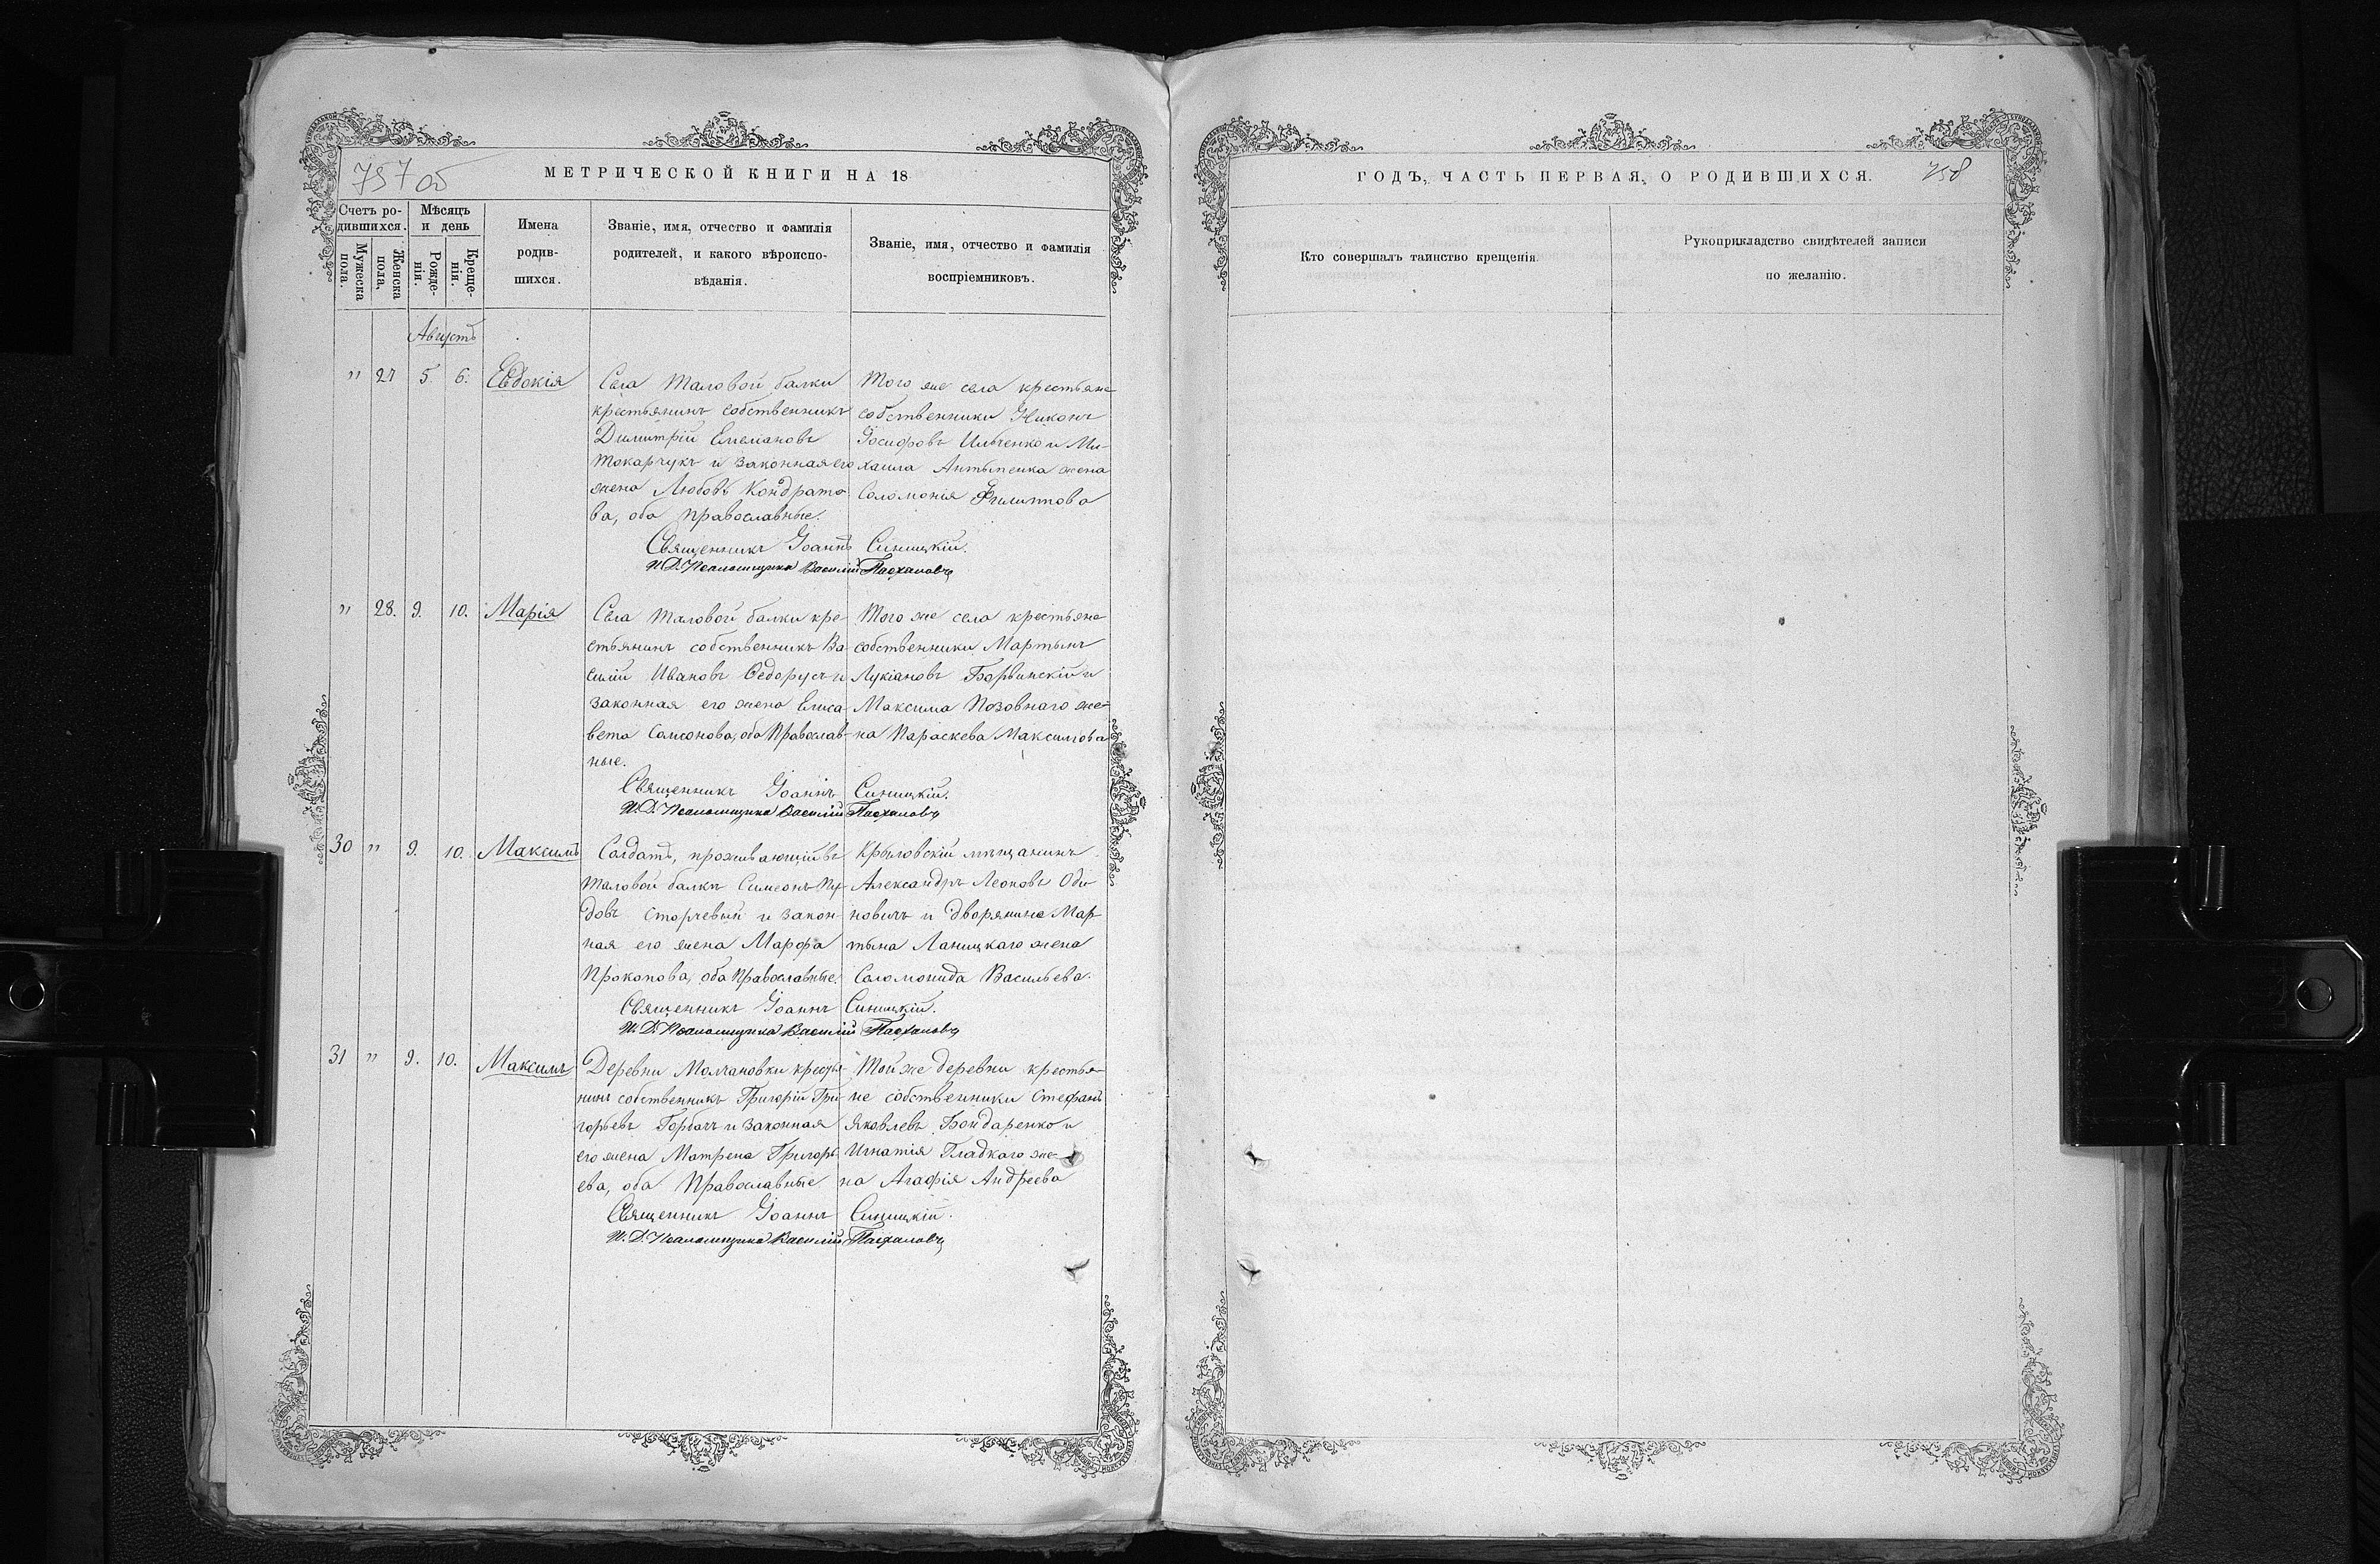 757 об
МЕТРИЧЕСКОЙ КНИГИ НА 18
Счетъ родившихся.
Мужеска пола.
Женска пола.
Мѣсяцъ и день
Рожденія.
Крещенія.
Имена
родив-
шихся.
Званіе, имя, отчество и фамилія
родителей, и какого вѣроиспо-
вѣданія.
Званіе, имя, отчество и фамилія
воспріемниковъ.
Августъ
" 27 5. 6. Евдокія
Села Таловой балки
крестьянинъ собственникъ
Димитрій Емеліановъ
Токарчукъ и законная его
жена Любовь Кондрато-
ва, оба православные.
Того же села крестьяне
собственники Никонъ
Іосифовъ Ильченко и Ми-
хаила Антыпенка жена
Соломонія Филиппова
Священникъ Іоаннъ Синицкій.
И.Д. Псаломщика Василій Пасхаловъ
" 28. 9. 10. Марія
Села Таловой балки кре-
стьянинъ собственникъ Ва-
силій Ивановъ Ѳедорусъ и
законная его жена Елиса-
вета Самсонова, оба Православ-
ные.
Того же села крестьяне
собственники Мартынъ
Лукіановъ и
Максима Позовнаго же-
на Параскева Максимова
Священникъ Іоаннъ Синицкій.
И.Д. Псаломщика Василій Пасхаловъ
30 " 9. 10. Максимъ
Солдатъ, проживающій въ
Таловой балкѣ Симеонъ
довъ Сторчевый и закон-
ная его жена Марфа
Прокопова, оба Православные.
Крыловскій мѣщанинъ
Александръ Леоновъ Оди-
новичъ и дворянина Мар-
тына Ланицкаго жена
Соломонида Васильева.
Священникъ Іоаннъ Синицкій.
И.Д. Псаломщика Василій Пасхаловъ
31 " 9. 10. Максимъ
Деревни Молчановки кресть-
нинъ собственникъ Григорій Гри-
горьевъ Горбачъ и законная
его жена Матрена Григорь-
ева, оба Православные
Той же деревни крестья-
не собственники Стефанъ
Яковлевъ Бондаренко и
Игнатія Гладкаго же-
на Агафія Андреева
Священникъ Іоаннъ Синицкій.
И.Д. Псаломщика Василій Пасхаловъ
ГОДЪ, ЧАСТЬ ПЕРВАЯ, О РОДИВШИХСЯ.
758
Кто совершалъ таинство крещенія.
Рукоприкладство свидѣтелей записи
по желанію.